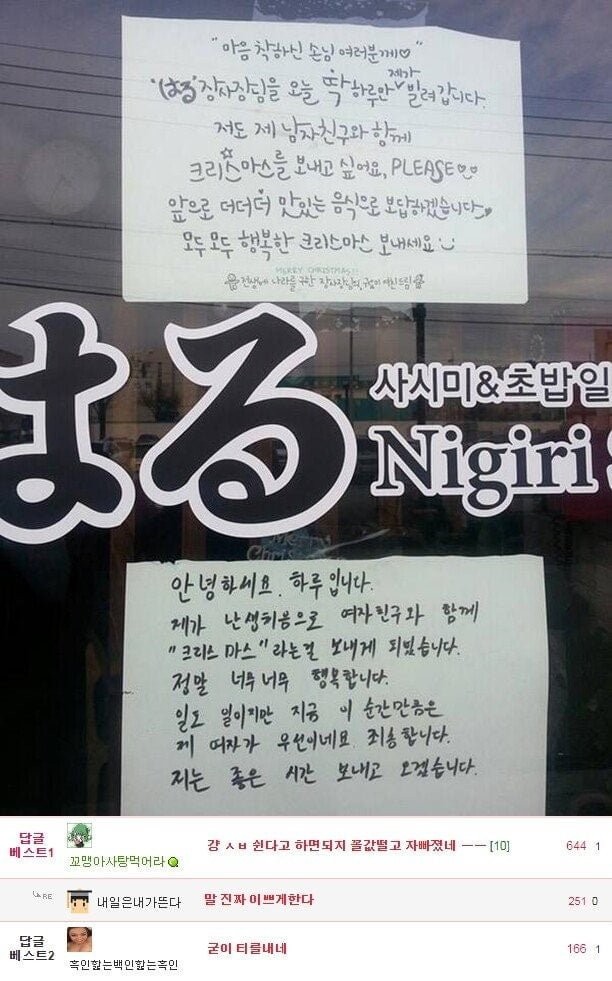 "마음 착하신 손님 여러분께♡"
'はる' 장사장님을 오늘 딱 하루만 제가 빌려갑니다.
저도 제 남자친구와 함께
크리스마스를 보내고 싶어요, PLEASE♡♡
앞으로 더더더 맛있는 음식으로 보답하겠습니다♥
모두모두 행복한 크리스마스 보내세요
MERRY CHRISTMAS!!
전생에 나라를 구한 장사장님의 여친드림
はる
사시미&초밥일
Nigiri
안녕하세요. 하루입니다.
제가 난생처음으로 여자친구와 함께
"크리스마스"라는걸 보내게 되었습니다.
정말 너무너무 행복합니다.
일도 일이지만 지금 이 순간만큼은
제 여자가 우선이네요. 죄송합니다.
저는 좋은 시간 보내고 오겠습니다.
답글 베스트1
꼬맹아사탕먹어라
걍 ㅅㅂ 쉰다고 하면되지 꼴값떨고 자빠졌네 ㅡㅡ [10] 644 1
RE 내일은내가뜬다 말 진짜 이쁘게한다 251 0
답글 베스트2
흑인핥는백인핥는흑인
굳이 티를내네 166 1